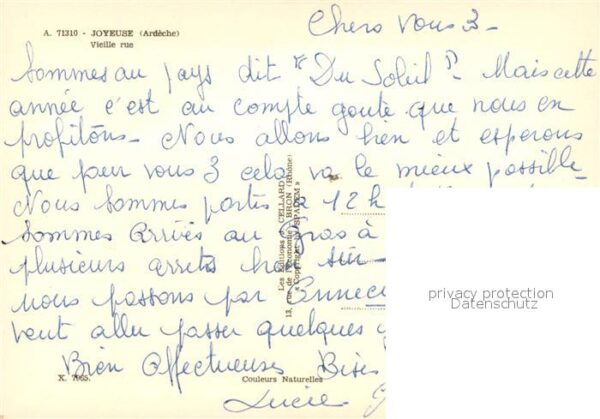 A. 71310 - JOYEUSE (Ardèche)
Vieille rue
Chers vous 3 -
Sommes au pays dit "Du Soleil". Mais cette
année c'est au compte goute que nous en
profitons - Nous allons bien et esperons
que pour vous 3 cela va le mieux possible -
Nous sommes partis à 12 h
Sommes arrivés au à
plusieurs arrets
nous passons par Annecy
veut aller passer quelques
Bien Affectueuses Bises
Lucie
Les Editions « CELLARD »
13, rue de l'Economie - BRON (Rhône)
« Copyright by SPADEM »
X. 7065.
Couleurs Naturelles
privacy protection
Datenschutz